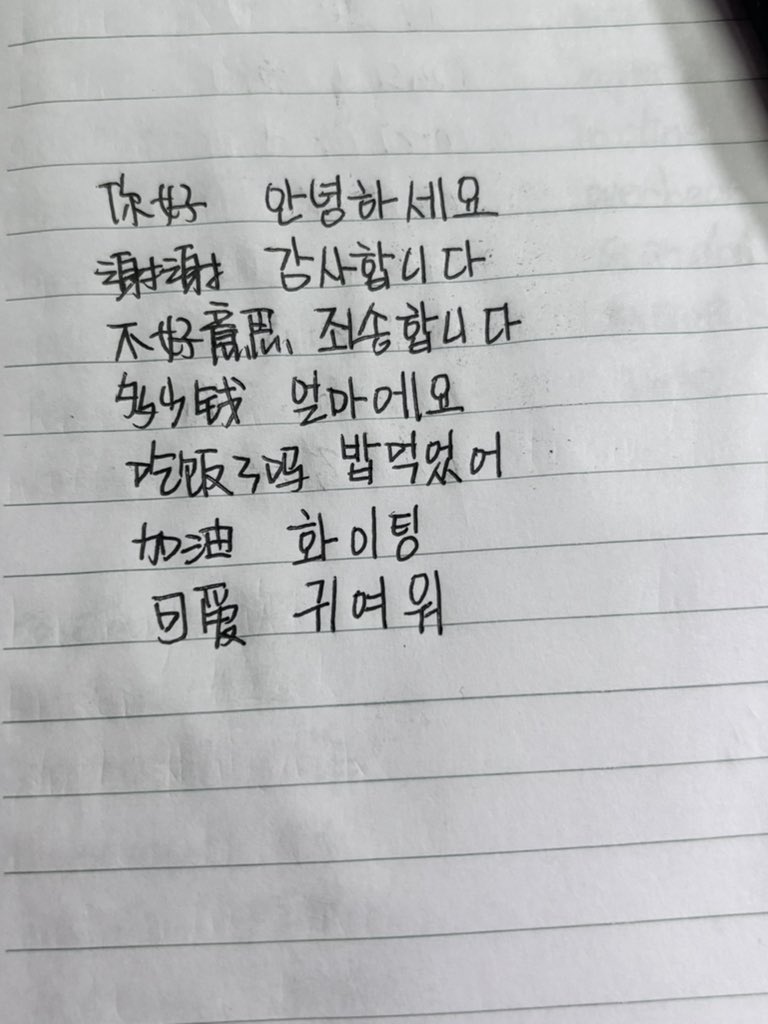 你好 안녕하세요
謝謝 감사합니다
不好意思 죄송합니다
多少钱 얼마에요
吃饭了吗 밥먹었어
加油 화이팅
可爱 귀여워